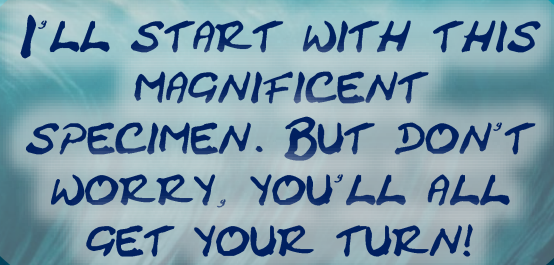 I'll start with this
magnificent
specimen. But don't
worry, you'll all
get your turn!